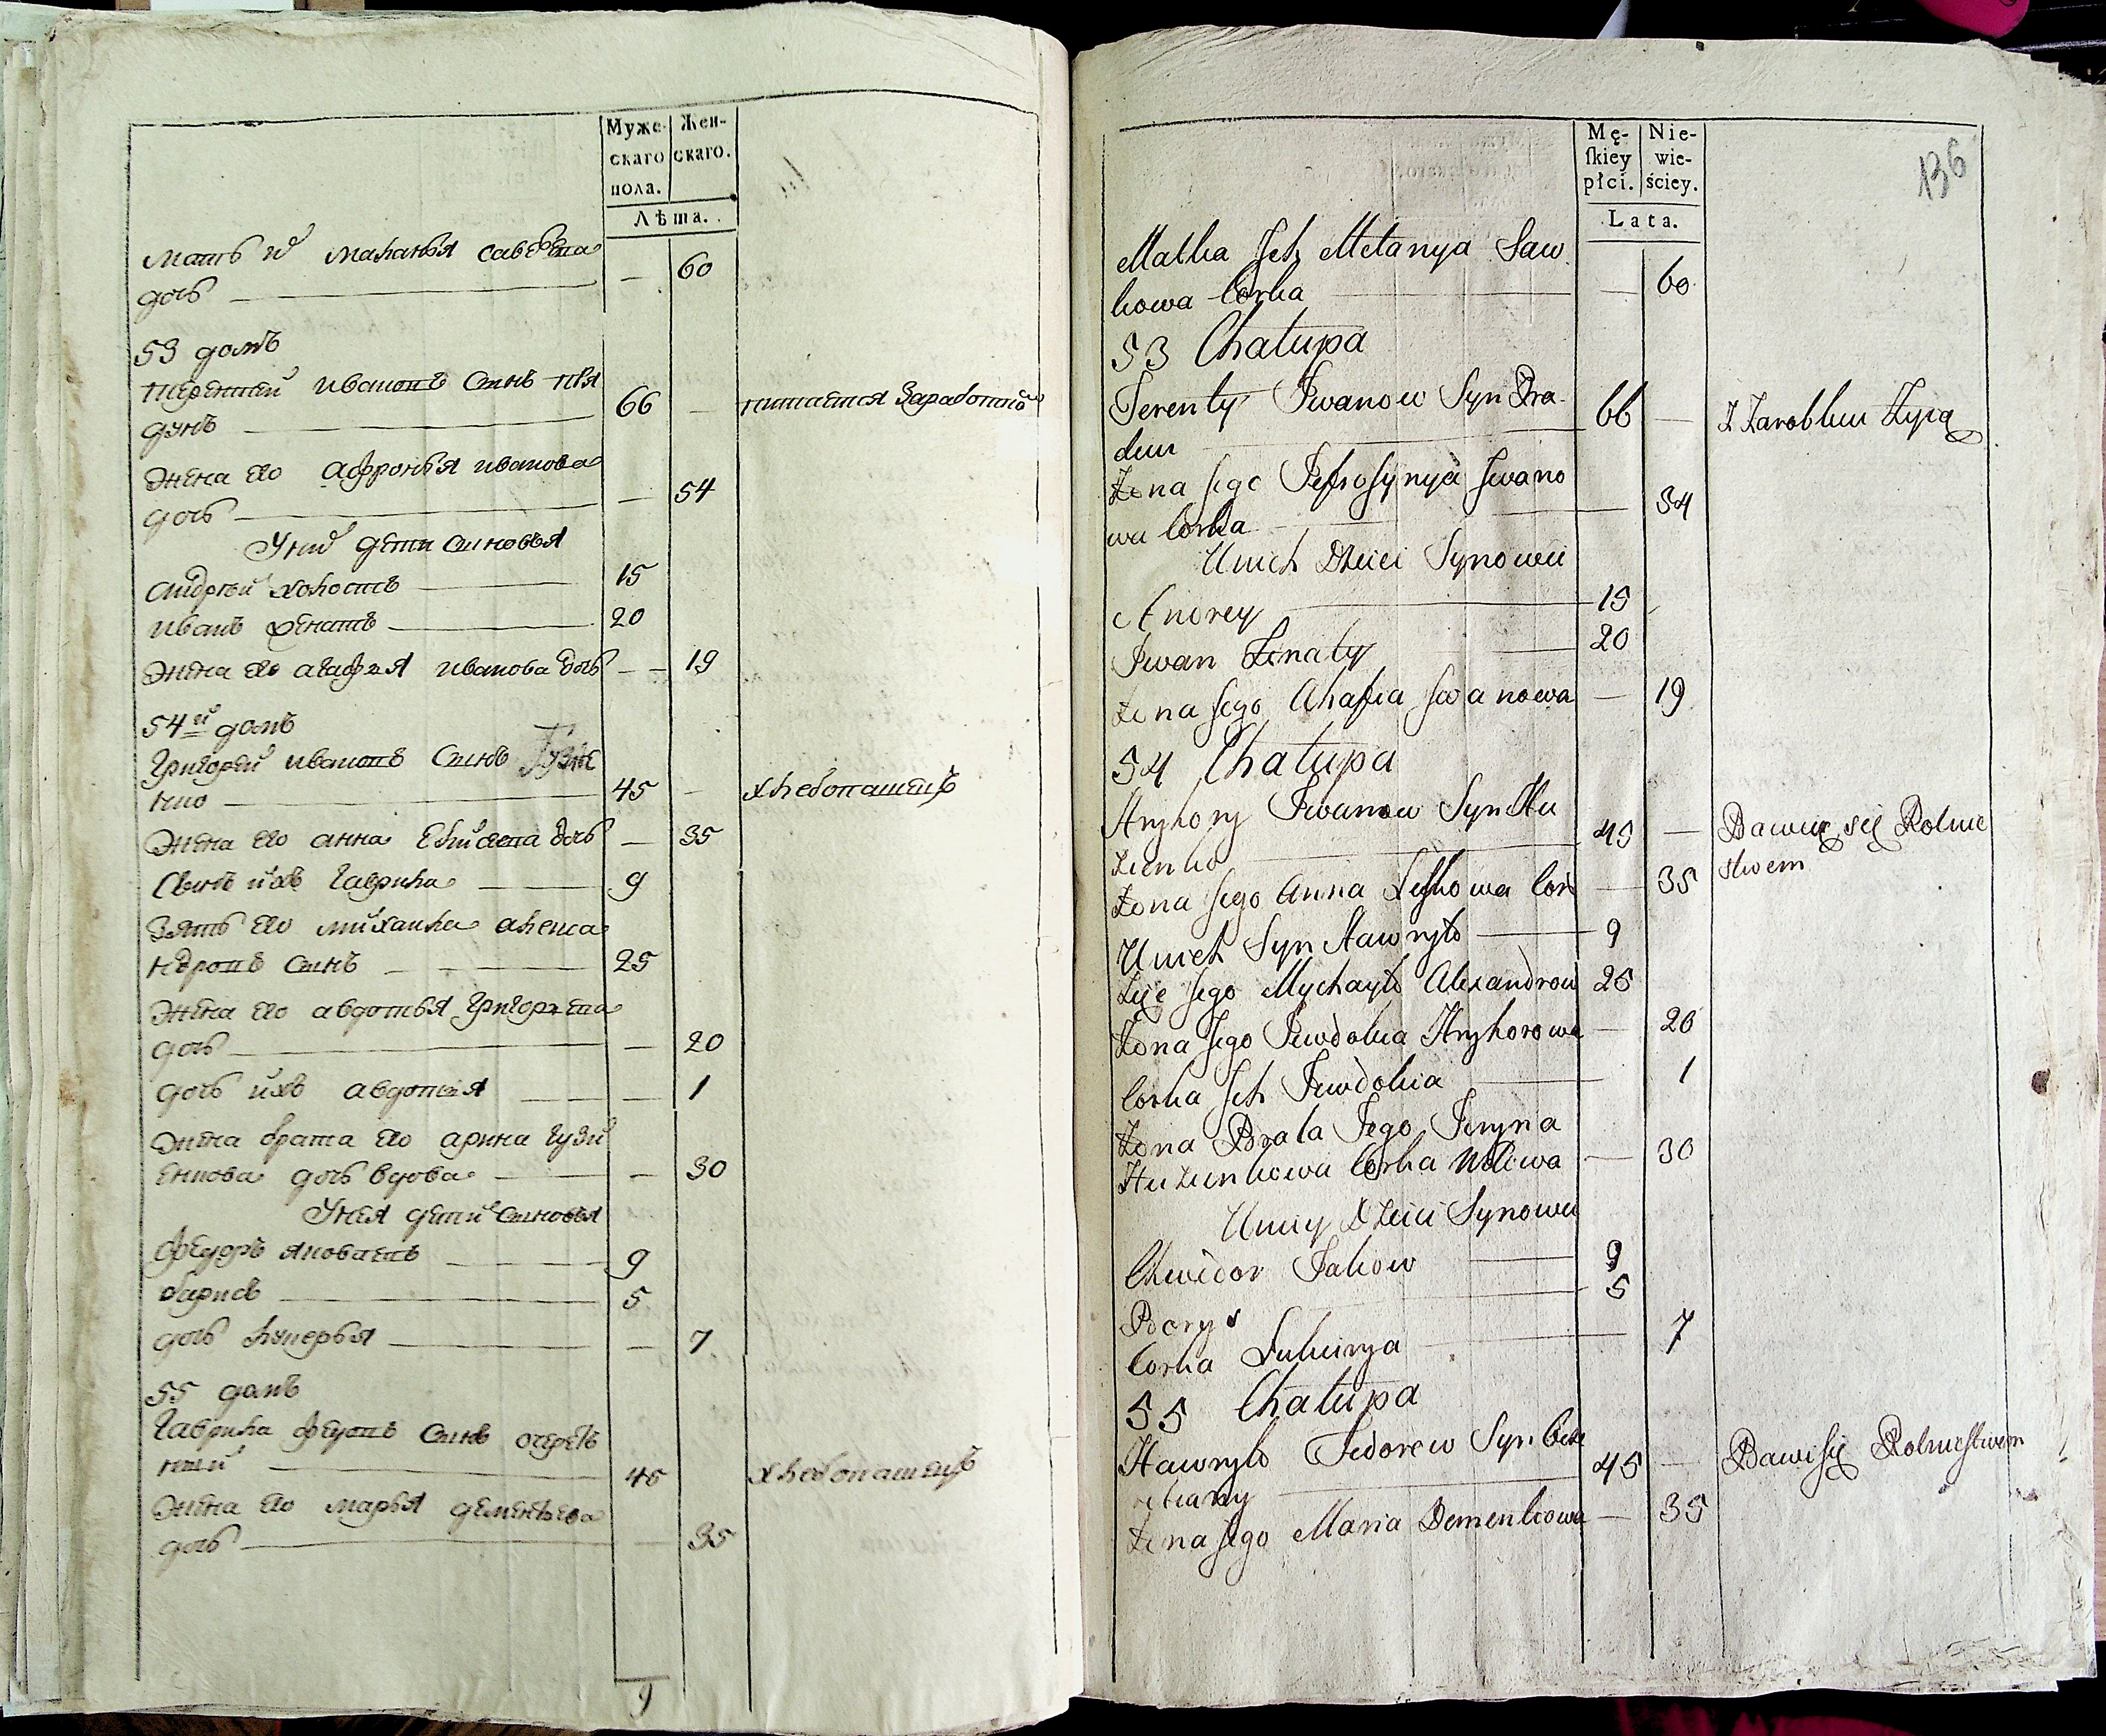 Муже-
скаго
пола.
Жен-
скаго.
Лѣта.
мать их маланья савъева
дочь 60
53 домъ
терентей ивановъ сынъ пря
дунъ 66 питается Заработкою
жена его афронья иванова
дочь 54
У них дети сыновья
андрѣй холостъ 15
иванъ женатъ 20
жена его агафья иванова дочь 19
54й домъ
григорей ивановъ сынъ Гузие
нко 45 хлебопашецъ
жена его анна Елисеева дочь 35
Сынъ ихъ гаврила 9
Зять его михаила алекса
ндровъ сынъ 25
жена его авдотья григорьева
дочь 20
дочь ихъ авдотья 1
жена брата его арина гузи
енкова дочь вдова 30
У нея дети сыновья
феудръ яковлевъ 9
барисъ 5
дочь лукерья 7
55 домъ
гаврила феуровъ сынъ очеретъ
ный 45 хлебопашецъ
жена его марья деменьтьева
дочь 35
9
Mę-
ſkiey
płci.
Nie-
wie-
ściey.
Lata.
136
Matka Jch Melanya Saw
kowa Corka 60
53 Chałupa
Terenty Jwanow Syn Pra
dun 66 Z Zarobku Żyią
Żona Jego Jefrosynya Jwano
wa Corka 54
U nich Dzieci Synowie
Andrey 15
Jwan Żonaty 20
Żona Jego Ahafia Jwanowa 19
54 Chałupa
Hryhory Jwanow Syn Hu
zienko 45 Bawię się Rolnic
stwem
Żona Jego Anna Leskowa Cor 35
U nich Syn Hawryło 9
Zięć Jego Mychayło Alexandrow 25
Żona Jego Jewdokia Hryhorowa 20
Corka Jch Jewdokia 1
Żona Brata Jego Jeryna
Huzienkowa Corka Wdowa 30
U niey Dzieci Synowie
Chwedor Jakow 9
Borys 5
Corka Łukierya 7
55 Chałupa
Hawryło Fedorow SynOcze
retiany 45 Bawi się Rolnictwem
Żona Jego Maria Dementiowa 35